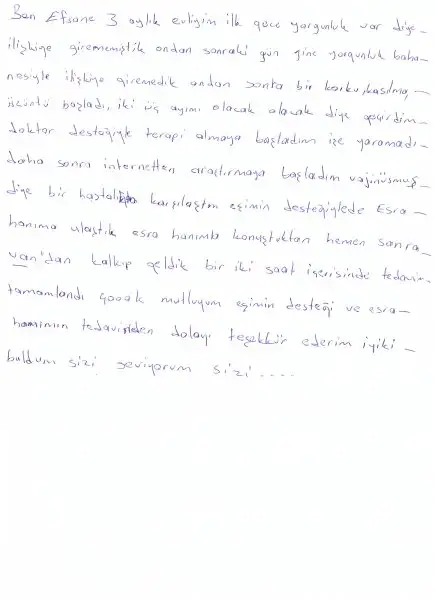 Ben Efsane 3 aylık evliyim ilk gece yorgunluk var diye-
ilişkiye girememiştik ondan sonraki gün yine yorgunluk baha-
nesiyle ilişkiye giremedik ondan sonra bir korku, kasılma, -
üzüntü başladı, iki üç ayımı olacak olacak diye geçirdim -
doktor desteğiyle terapi almaya başladım işe yaramadı -
daha sonra internetten araştırmaya başladım vajinusmuş -
diye bir hastalıkla karşılaştım eşimin desteğiylede Esra -
hanıma ulaştık esra hanımla konuştuktan hemen sonra -
van'dan kalkıp geldik bir iki saat içerisinde tedavim -
tamamlandı çooook mutluyum eşimin desteği ve esra -
hanımın tedavisinden dolayı teşekkür ederim iyiki -
buldum sizi seviyorum sizi ....